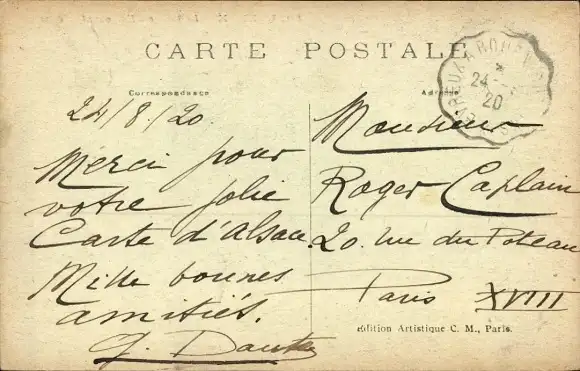 CARTE POSTALE
Correspondance
Adresse
24/8/20.
Merci pour
votre jolie
Carte d'Alsace.
Mille bonnes
amitiés.
Monsieur
Roger Caplain
20. rue du Poteau
Paris XVIII
24
20
Edition Artistique C. M., Paris.